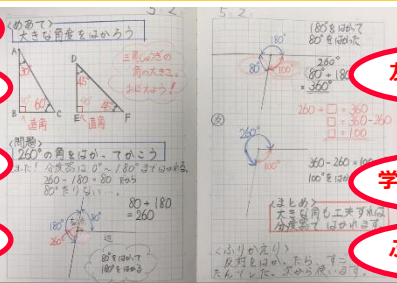 5.2.
<めあて>
大きな角度をはかろう
A
D
30°
45°
60°
45°
B
C
E
F
直角
直角
三角じょうぎの
角の大きさ
おぼえよう!
<問題>
260°の角をはかってかこう
分度器は0°~180°まではかれる
260-180=80 だから
80°たりない
80+180
=260
180°
80°
260°
80°をはかって
180°をはかる
5.2.
180°をはかって
80°をはかった
180°
80°
100°
260°
80°+180
=360°
260+□=360
□=360-260
□=100
260°
100°
360-260=100
100°をはか
<まとめ>
大きな角も工夫すれば
分度器ではかれます
<ふりかえり>
反対をはかったら、すご
たんでした。次から使います。
学
ふ